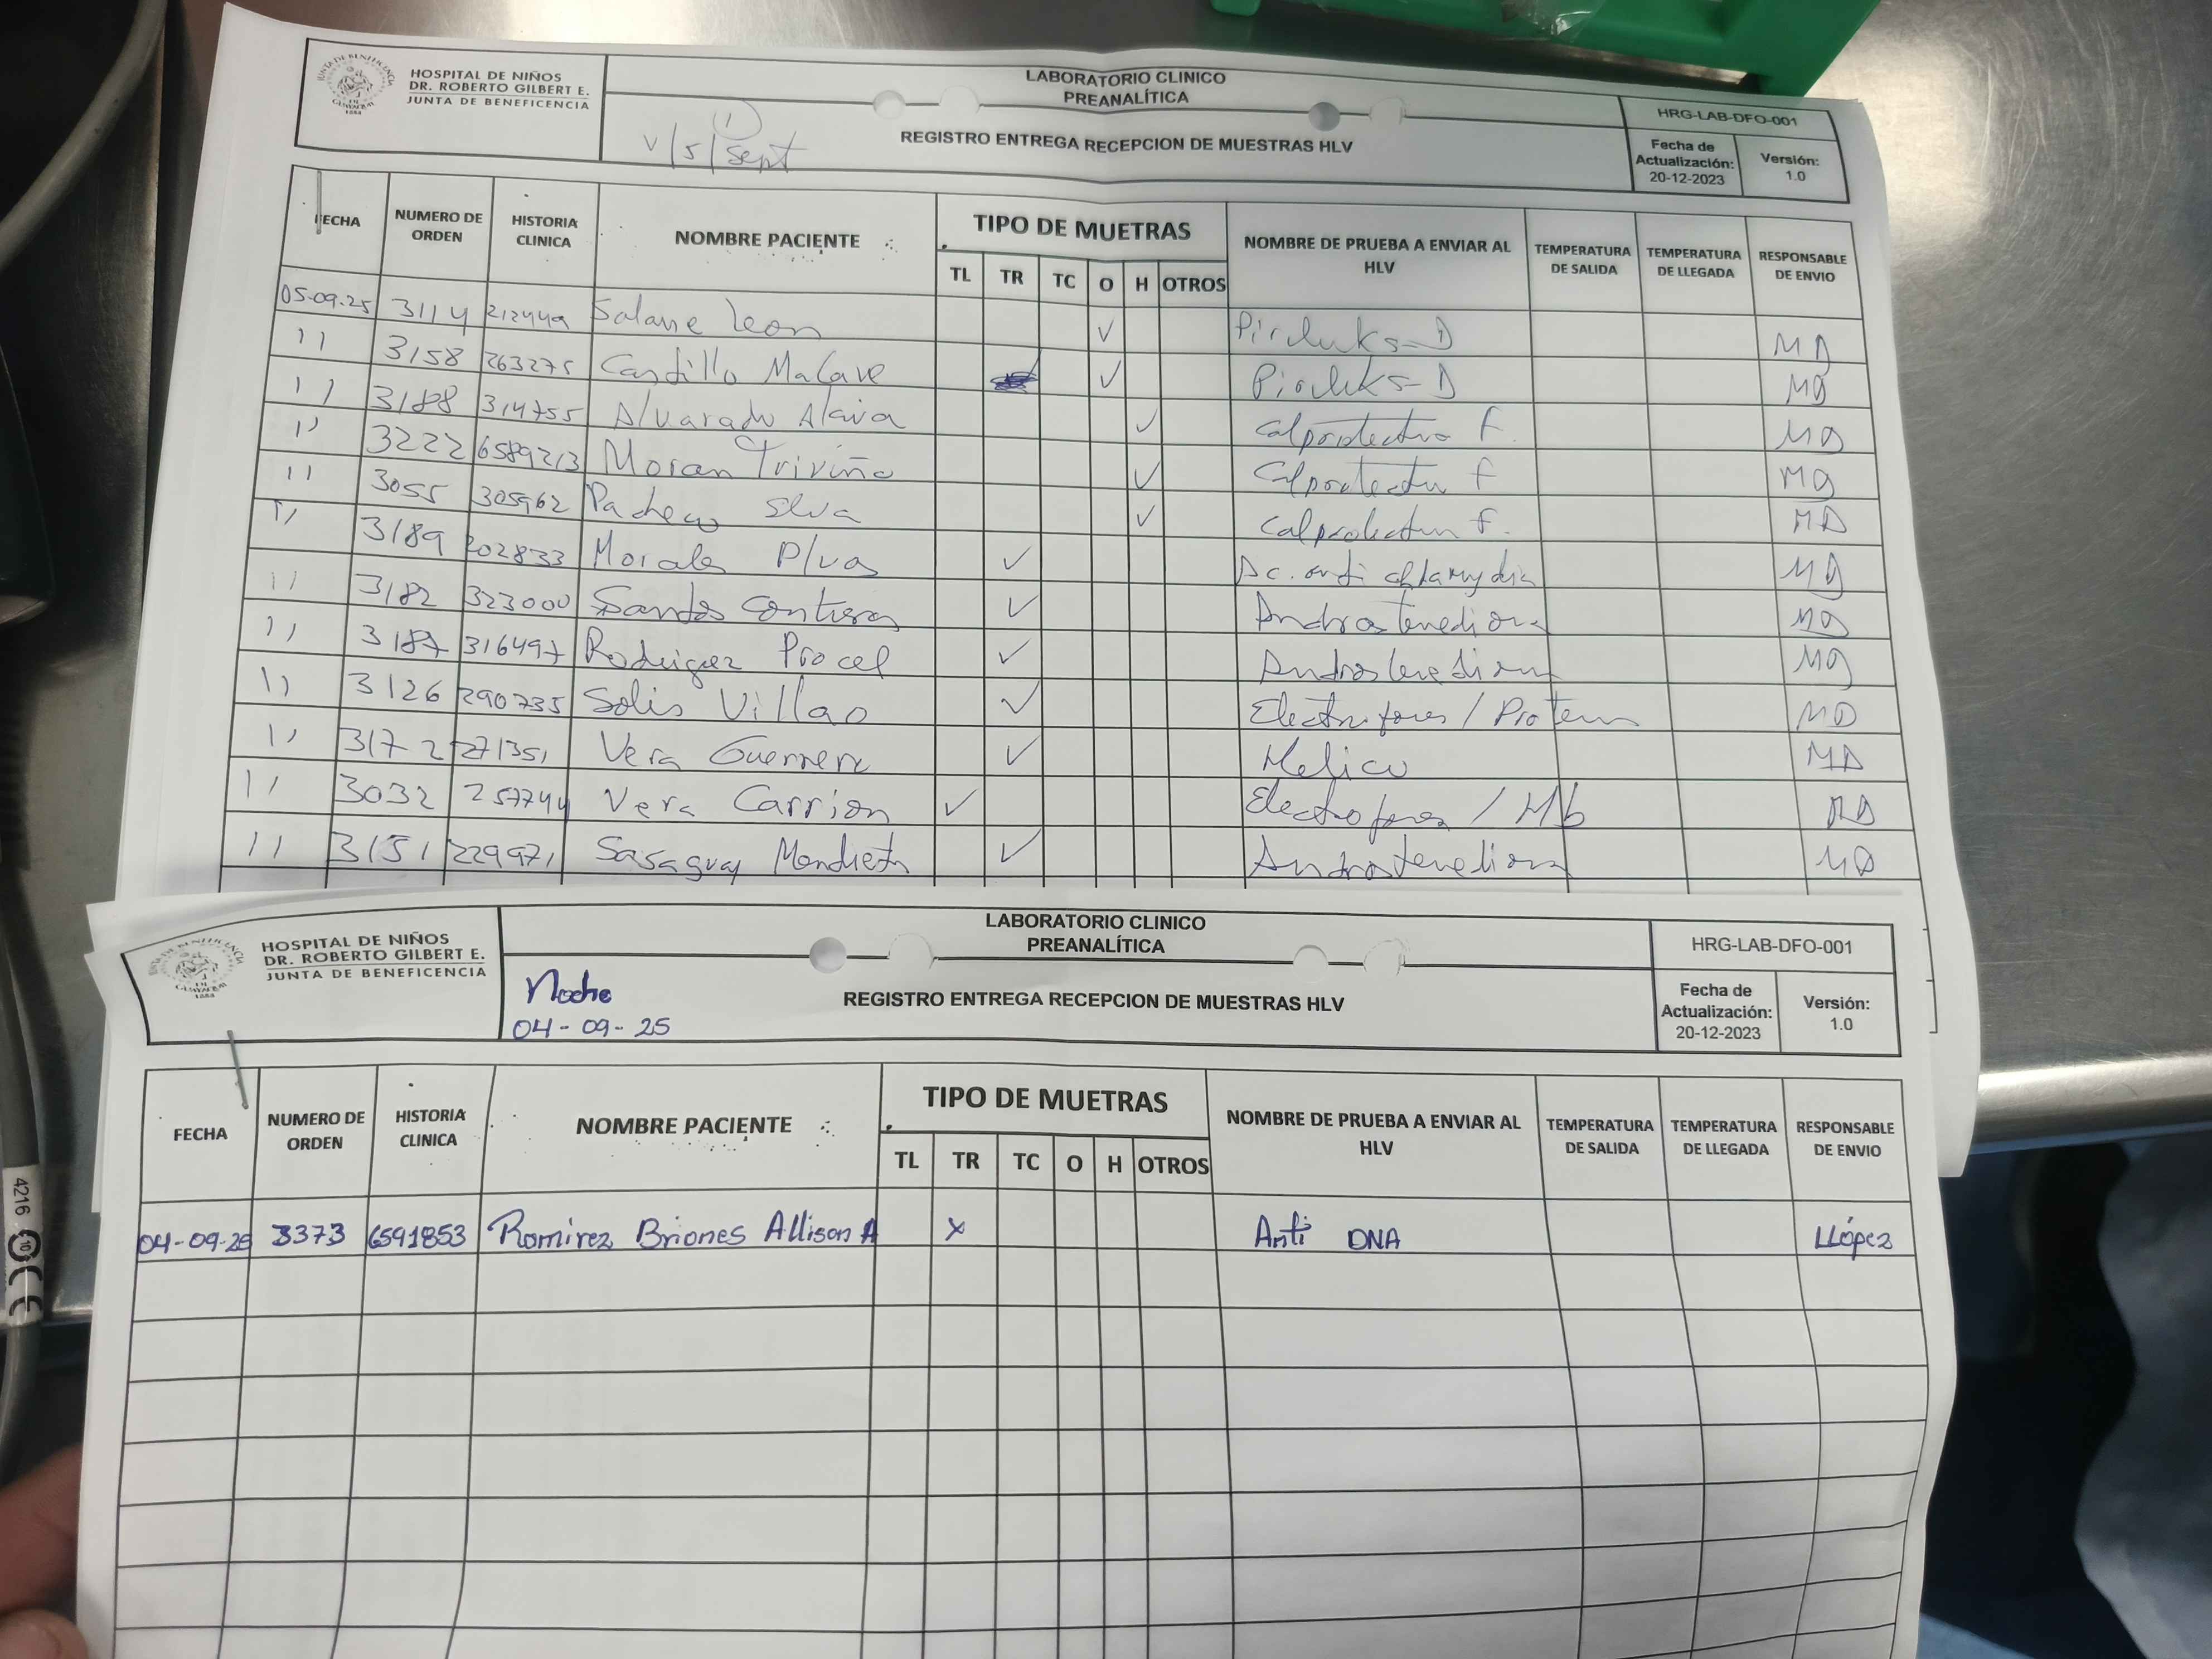 HOSPITAL DE NIÑOS
DR. ROBERTO GILBERT E.
JUNTA DE BENEFICENCIA
LABORATORIO CLINICO
PREANALÍTICA
1
V/5/sept
REGISTRO ENTREGA RECEPCION DE MUESTRAS HLV
HRG-LAB-DFO-001
Fecha de Actualización: 20-12-2023
Versión: 1.0
FECHA NUMERO DE ORDEN HISTORIA CLINICA NOMBRE PACIENTE TIPO DE MUETRAS NOMBRE DE PRUEBA A ENVIAR AL HLV TEMPERATURA DE SALIDA TEMPERATURA DE LLEGADA RESPONSABLE DE ENVIO
TL TR TC O H OTROS
05-09-25 3114 Leon ✓ MD
11 3158 263275 Castillo Malave ✓ MD
11 3188 314755 Alvarado Alava ✓ MD
11 3222 6589213 Moran Triviño ✓ MD
11 3055 305962 Pacheco Silva ✓ MD
11 3189 202833 Morales ✓ Ac. anti chlamydia MD
11 3182 323000 ✓ Androstenediona MD
11 3187 316497 Rodriguez Procel ✓ Androstenediona MD
11 3126 290735 Solis Villao ✓ MD
11 3172 271351 Vera Guerrero ✓ MD
11 3032 257744 Vera Carrion ✓ / Hb MD
11 3151 229971 Sasaguay Mendieta ✓ Androstenediona MD
HOSPITAL DE NIÑOS
DR. ROBERTO GILBERT E.
JUNTA DE BENEFICENCIA
LABORATORIO CLINICO
PREANALÍTICA
Noche
04-09-25
REGISTRO ENTREGA RECEPCION DE MUESTRAS HLV
HRG-LAB-DFO-001
Fecha de Actualización: 20-12-2023
Versión: 1.0
FECHA NUMERO DE ORDEN HISTORIA CLINICA NOMBRE PACIENTE TIPO DE MUETRAS NOMBRE DE PRUEBA A ENVIAR AL HLV TEMPERATURA DE SALIDA TEMPERATURA DE LLEGADA RESPONSABLE DE ENVIO
TL TR TC O H OTROS
04-09-25 3373 6591853 Ramirez Briones Allison A x Anti DNA LLópez
4216
10
CE